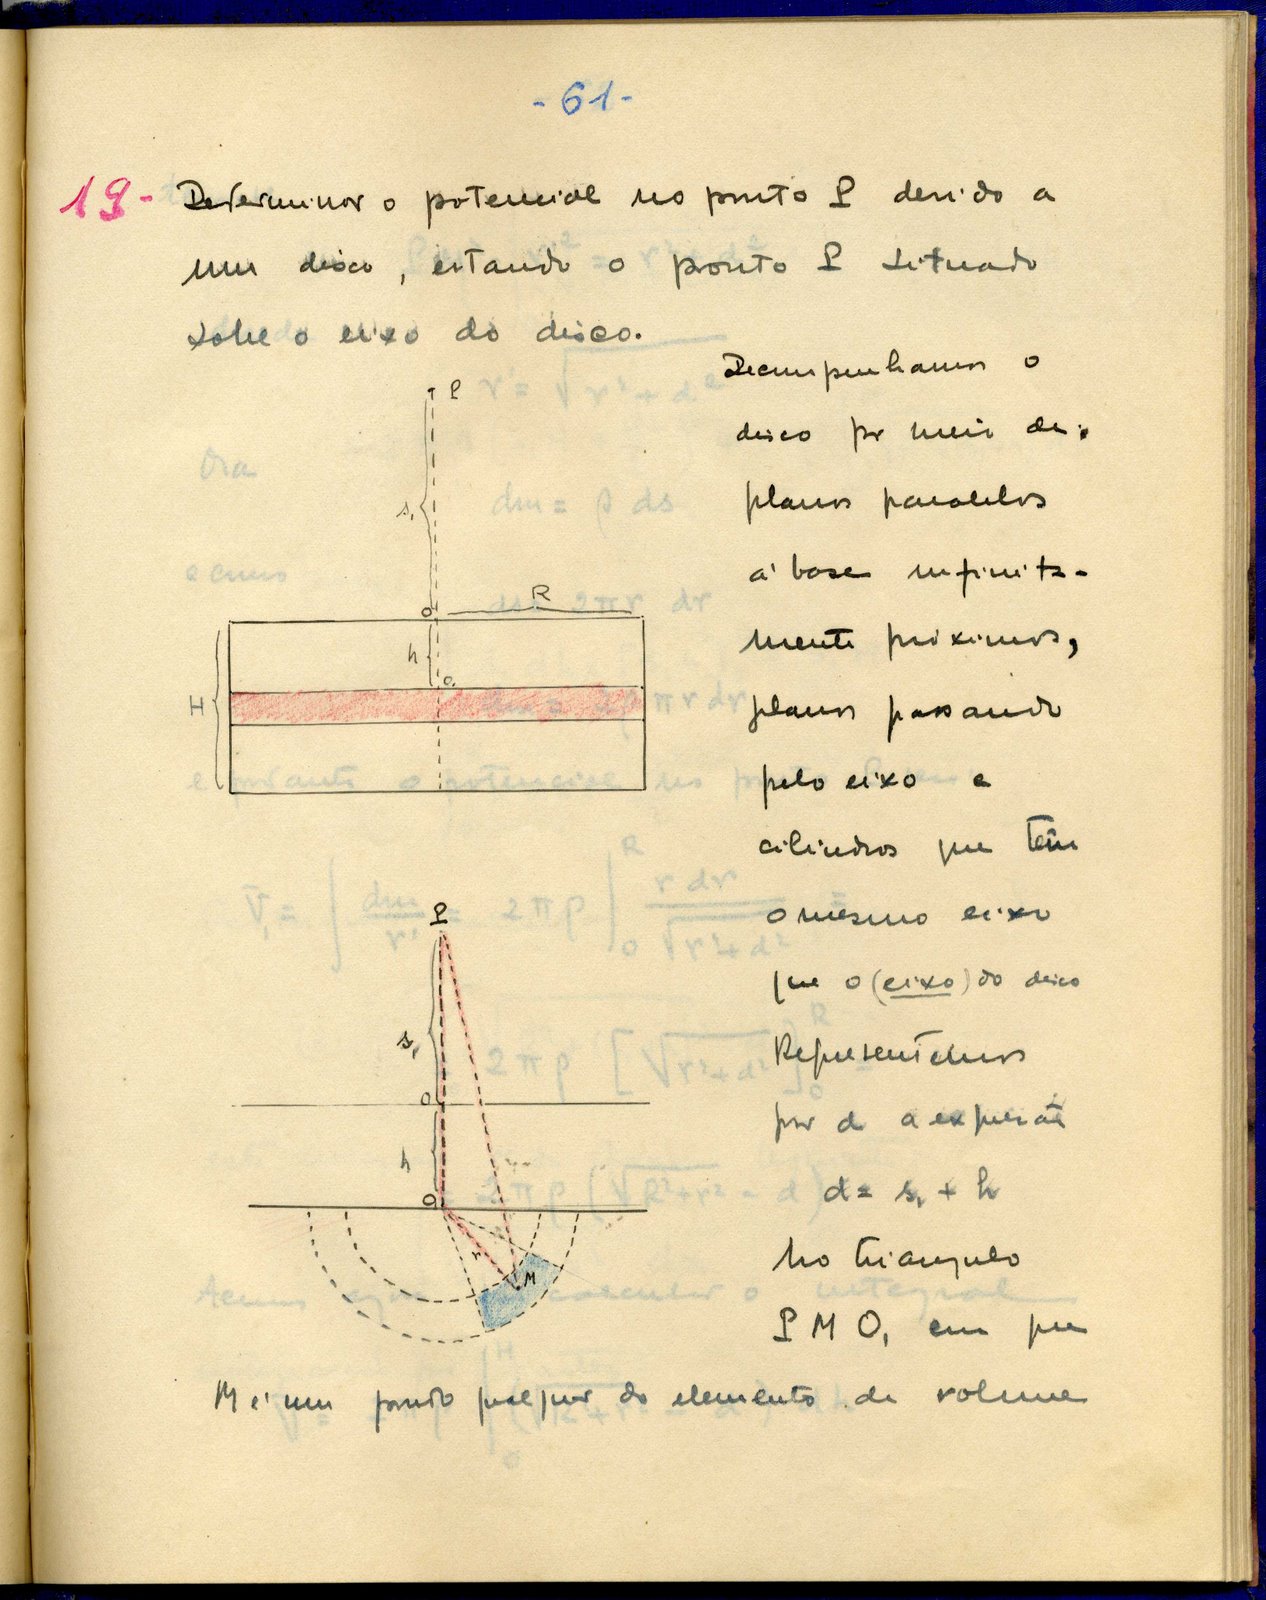 - 61 -
19 - Determinar o potencial no ponto P devido a
um disco, estando o ponto P situado
sobre o eixo do disco.
Decompunhamos o
disco por meio de
planos paralelos
á base infinita-
mente próximos,
planos passando
pelo eixo e
cilindros que têm
o mesmo eixo
que o (eixo) do disco
Representemos
por d a expressão
d = s₁ + h
No triangulo
P M O₁ em que
M é um ponto qualquer do elemento de volume
P
s₁
O
R
h
O₁
H
P
s₁
O
h
O
r
M